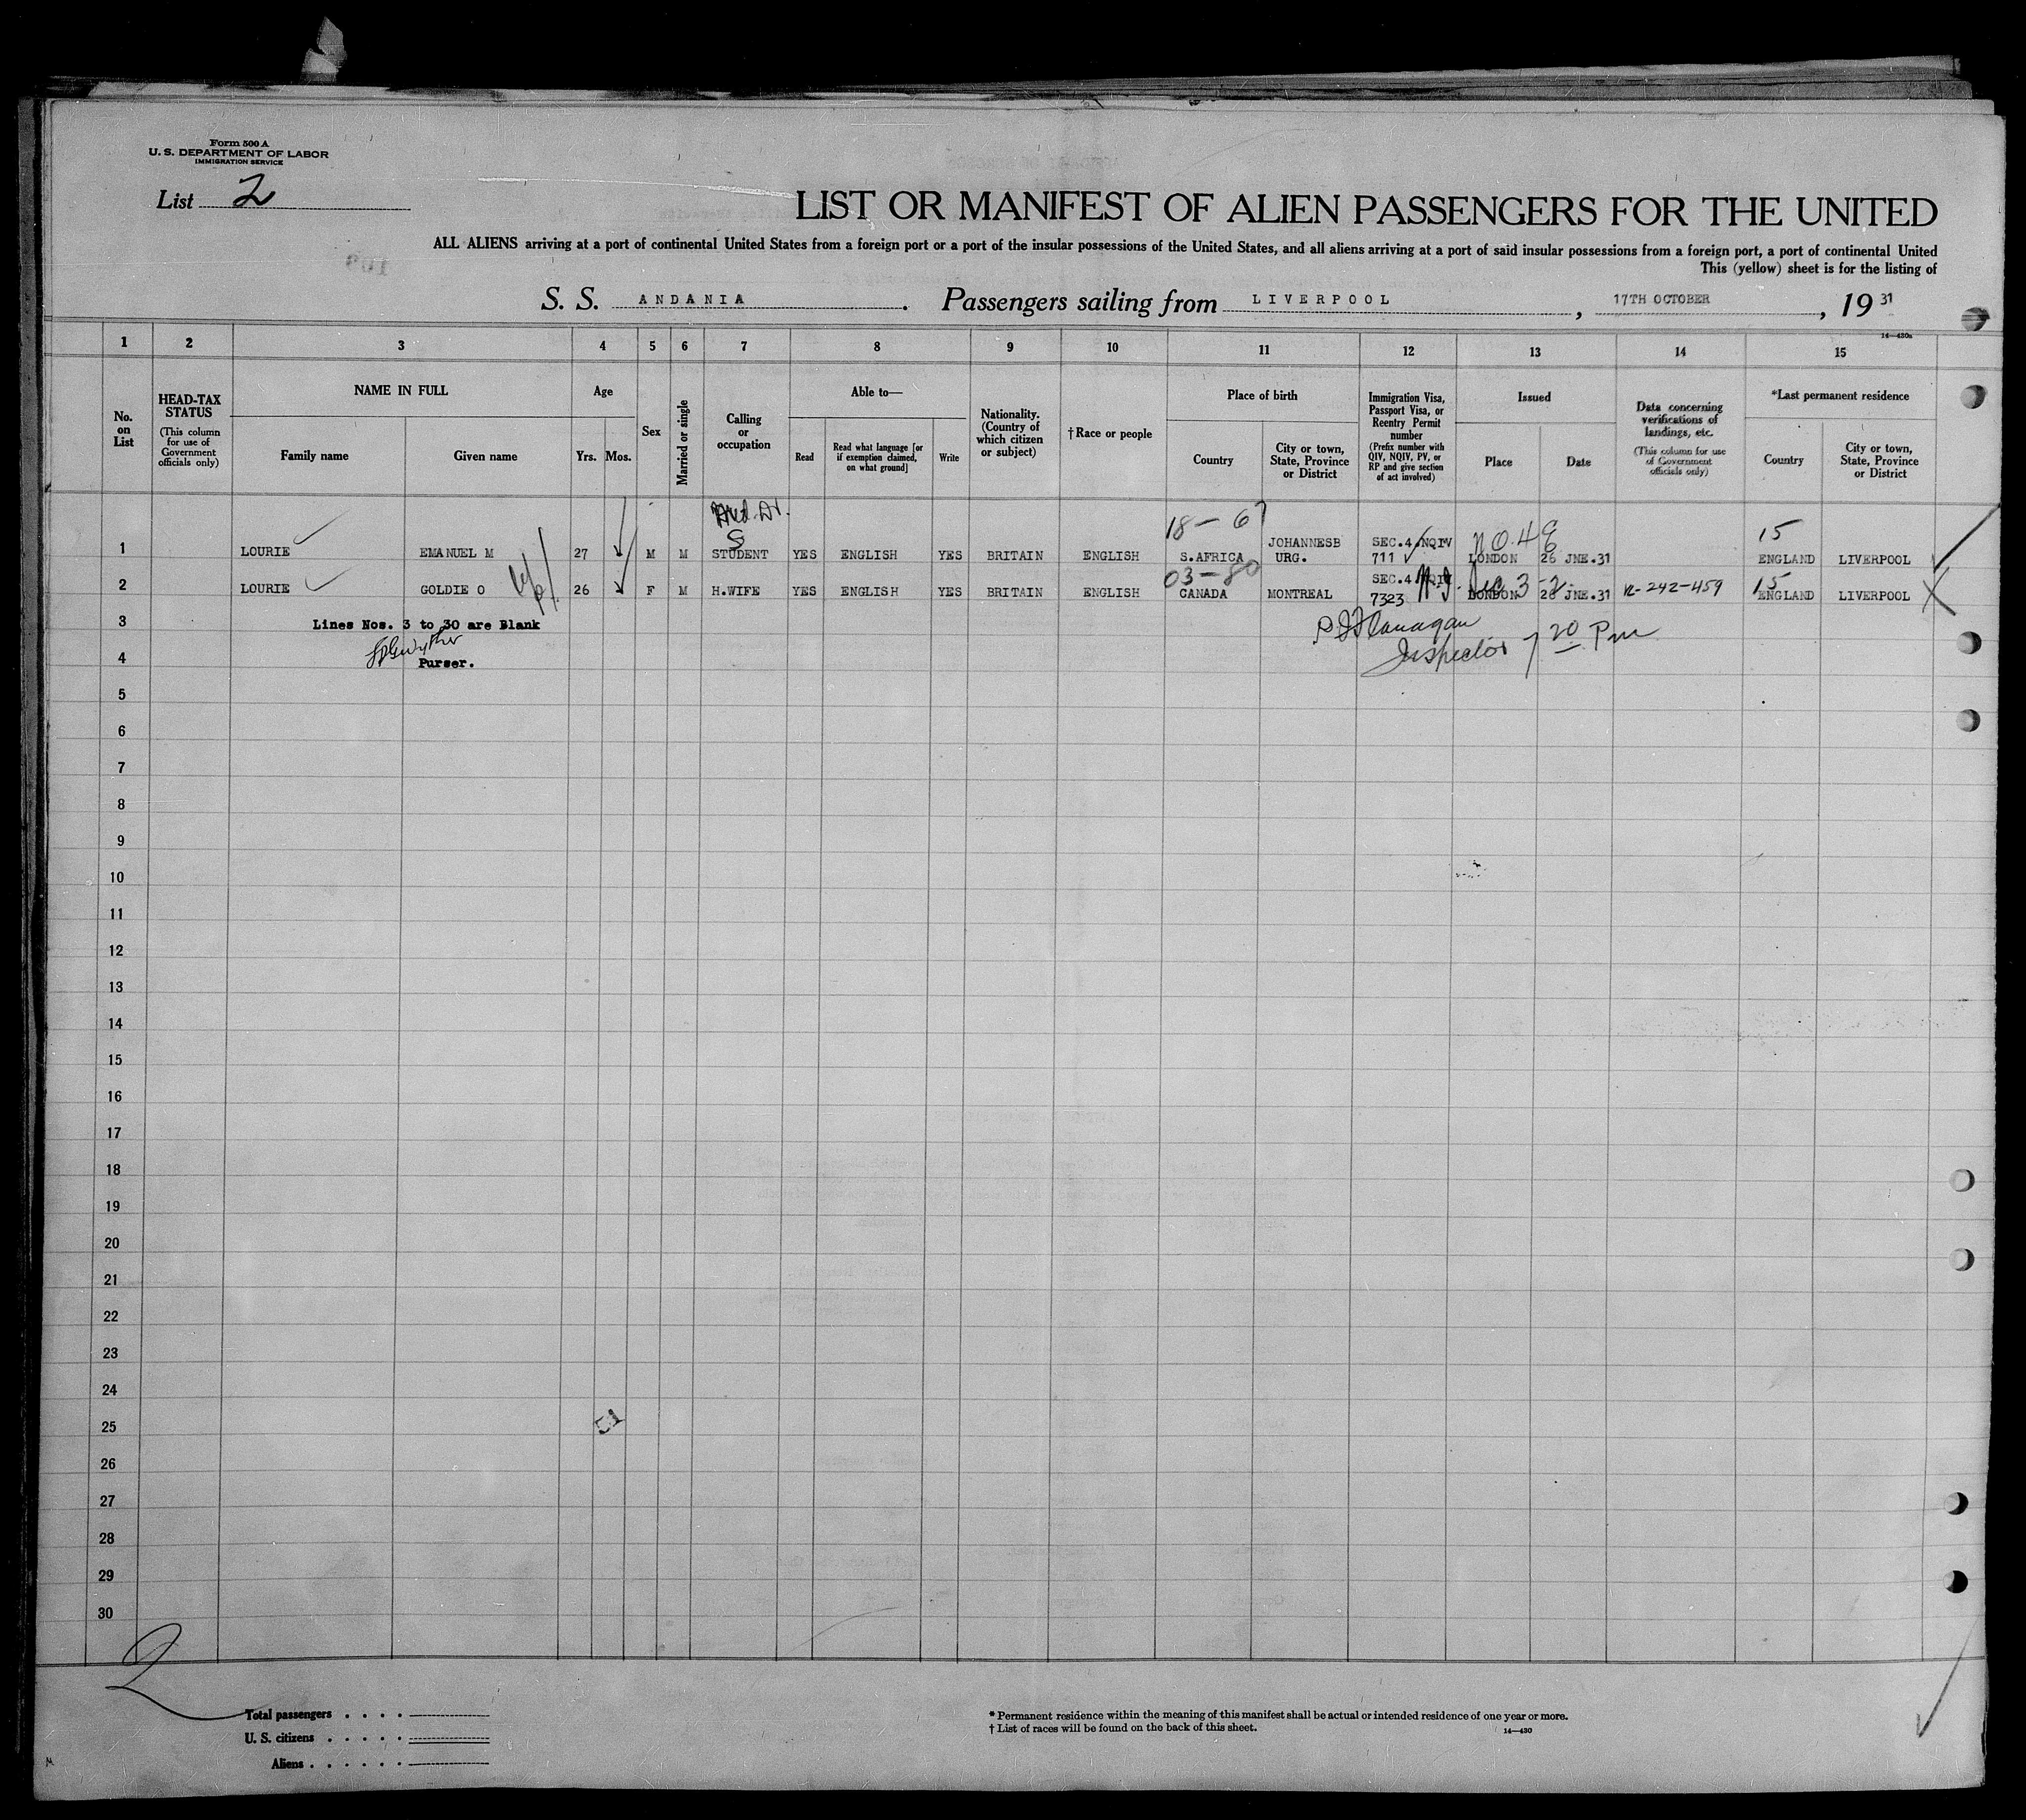 Form 500 A
U. S. DEPARTMENT OF LABOR
IMMIGRATION SERVICE
List 2
LIST OR MANIFEST OF ALIEN PASSENGERS FOR THE UNITED
ALL ALIENS arriving at a port of continental United States from a foreign port or a port of the insular possessions of the United States, and all aliens arriving at a port of said insular possessions from a foreign port, a port of continental United
This (yellow) sheet is for the listing of
S. S. ANDANIA. Passengers sailing from LIVERPOOL, 17TH OCTOBER, 19 31
14—430a
1 2 3 4 5 6 7 8 9 10 11 12 13 14 15
No. on List
HEAD-TAX STATUS
(This column for use of Government officials only)
NAME IN FULL
Family name
Given name
Age
Yrs.
Mos.
Sex
Married or single
Calling or occupation
Able to—
Read
Read what language [or if exemption claimed, on what ground]
Write
Nationality. (Country of which citizen or subject)
† Race or people
Place of birth
Country
City or town, State, Province or District
Immigration Visa, Passport Visa, or Reentry Permit number
(Prefix number with QIV, NQIV, PV, or RP and give section of act involved)
Issued
Place
Date
Data concerning verifications of landings, etc.
(This column for use of Government officials only)
*Last permanent residence
Country
City or town, State, Province or District
18 – 67
15
1 LOURIE EMANUEL M 27 M M STUDENT YES ENGLISH YES BRITAIN ENGLISH S.AFRICA JOHANNESB URG. SEC.4 NQIV 711 LONDON 26 JNE.31 ENGLAND LIVERPOOL
03 – 80
15
2 LOURIE GOLDIE O 26 F M H.WIFE YES ENGLISH YES BRITAIN ENGLISH CANADA MONTREAL SEC.4 NQIV 7323 LONDON 26 JNE.31 12-242-459 ENGLAND LIVERPOOL
3 Lines Nos. 3 to 30 are Blank
Flanagan
4 Purser.
Inspector 7 20 Pm
5
6
7
8
9
10
11
12
13
14
15
16
17
18
19
20
21
22
23
24
25
26
27
28
29
30
2
Total passengers . . . .
U. S. citizens . . . . .
Aliens . . . . . .
* Permanent residence within the meaning of this manifest shall be actual or intended residence of one year or more.
† List of races will be found on the back of this sheet.
14—430